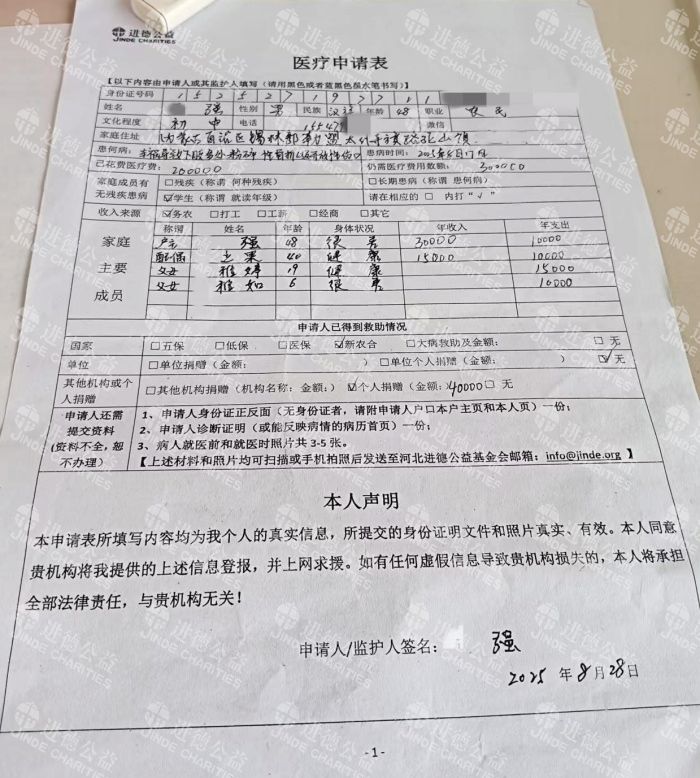 进德公益
JINDE CHARITIES
医疗申请表
【以下内容由申请人或其监护人填写（请用黑色或者蓝黑色墨水笔书写）】
身份证号码 1 5 2 5 2 7 1 9 7 7 1 1
姓名 强 性别 男 民族 汉 年龄 48 职业 农民
文化程度 初中 电话 微信
家庭住址
患何病： 患病时间：2025年8月
已花费医疗费：200000 仍需医疗费用数额：300000
家庭成员有无残疾患病 □残疾（称谓 何种残疾） □长期患病（称谓 患何病）
☑学生（称谓 就读年级） 请在相应的 □ 内打“√”
收入来源 ☑务农 □打工 □工薪 □经商 □其它
家庭主要成员 称谓 姓名 年龄 身体状况 年收入 年支出
户主 强 48 30000 10000
配偶 40 健康 15000 10000
19 健康 15000
6 10000
申请人已得到救助情况
国家 □五保 □低保 □医保 ☑新农合 □大病救助及金额： □ 无
单位 □单位捐赠（金额： ） □单位个人捐赠（金额： ） ☑无
其他机构或个人捐赠 □其他机构捐赠（机构名称：金额：） ☑个人捐赠（金额：）40000 □ 无
申请人还需提交资料（资料不全，恕不办理）
1、申请人身份证正反面（无身份证者，请附申请人户口本户主页和本人页）一份；
2、申请人诊断证明（或能反映病情的病历首页）一份；
3、病人就医前和就医时照片共 3-5 张。
【上述材料和照片均可扫描或手机拍照后发送至河北进德公益基金会邮箱：info@jinde.org 】
本人声明
本申请表所填写内容均为我个人的真实信息，所提交的身份证明文件和照片真实、有效。本人同意
贵机构将我提供的上述信息登报，并上网求援。如有任何虚假信息导致贵机构损失的，本人将承担
全部法律责任，与贵机构无关！
申请人/监护人签名： 强
2025 年 8 月 28 日
- 1 -